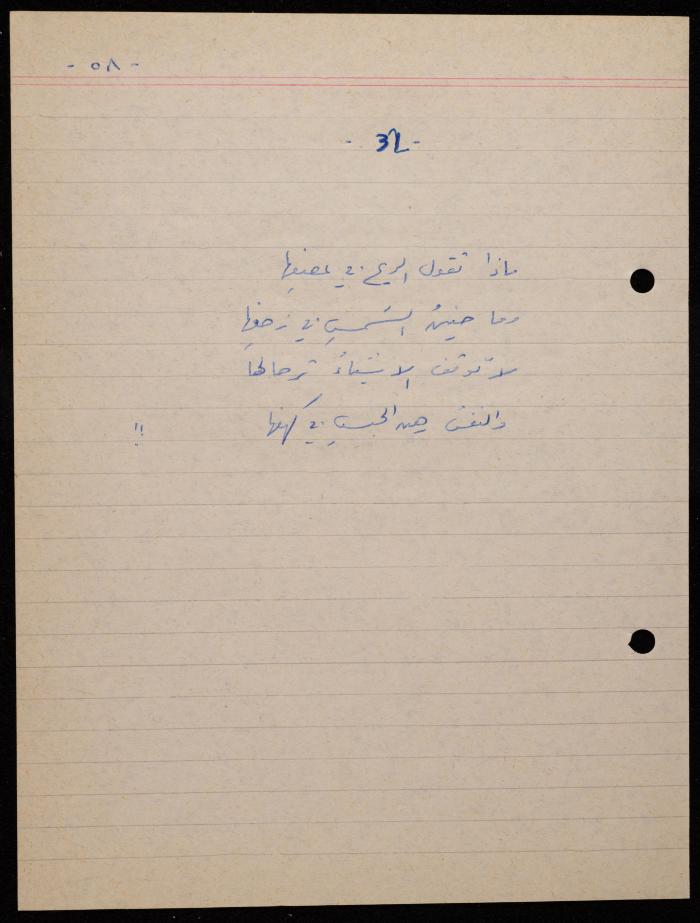 - ٥٨ -
- 32 -
ماذا تقول الريح في عصفِها
وما حنينُ الشمسِ في زحفِها
لا توقف الاشياءُ ترحالها
والنفسُ رهن الحبسِ في كهفها !!